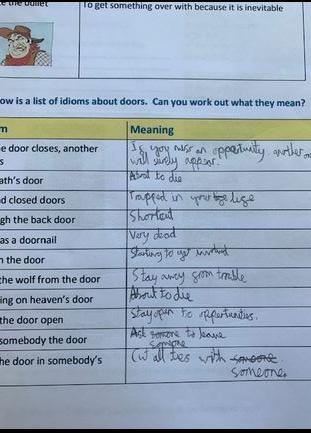 e the bullet
To get something over with because it is inevitable
ow is a list of idioms about doors. Can you work out what they mean?
m
Meaning
e door closes, another
s
If you miss an opportunity, another
will surely appear.
ath's door
About to die
d closed doors
Trapped in your life
gh the back door
Shortcut
as a doornail
Very dead
n the door
Starting to get involved
the wolf from the door
Stay away from trouble
ing on heaven's door
About to die
the door open
Stay open to opportunities.
somebody the door
Ask someone to leave
someone
he door in somebody's
Cut all ties with someone
someone.